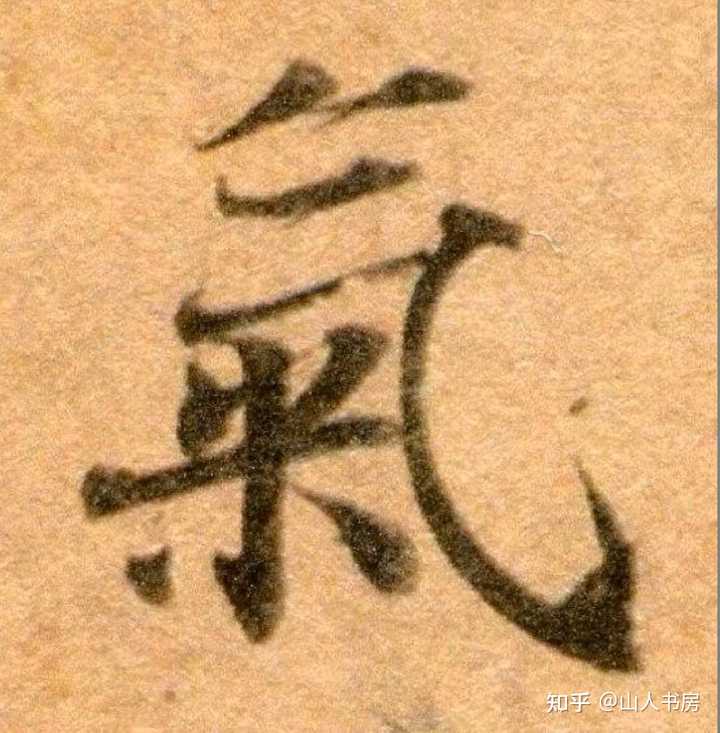 氣
知乎 @山人书房